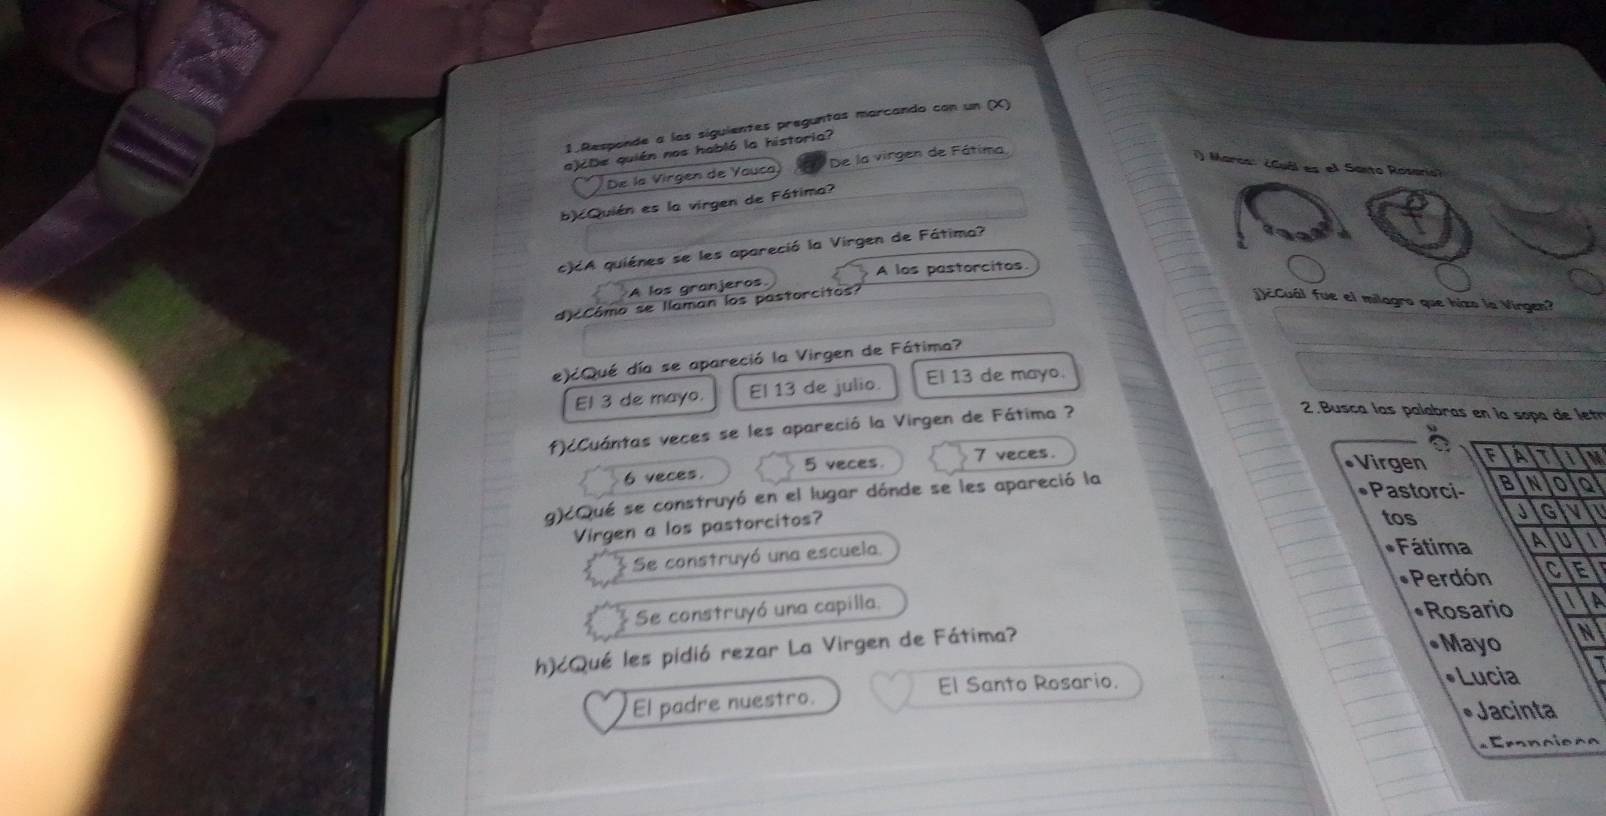 1.Responde a las siguientes preguntas marcando con un (X)
a)¿De quién nos habló la historia?
De la Virgen de Yauca)
De la virgen de Fátima.
b)¿Quién es la virgen de Fátima?
c)¿A quiénes se les apareció la Virgen de Fátima?
A los granjeros.
A los pastorcitos.
d)¿Cómo se llaman los pastorcitos?
e)¿Qué día se apareció la Virgen de Fátima?
El 3 de mayo.
El 13 de julio.
El 13 de mayo.
f)¿Cuántas veces se les apareció la Virgen de Fátima ?
6 veces.
5 veces.
7 veces.
g)¿Qué se construyó en el lugar dónde se les apareció la
Virgen a los pastorcitos?
Se construyó una escuela.
Se construyó una capilla.
h)¿Qué les pidió rezar La Virgen de Fátima?
El padre nuestro.
El Santo Rosario.
i) Marca: ¿Cuál es el Santo Rosario?
j)¿Cuál fue el milagro que hizo la Virgen?
2.Busca las palabras en la sopa de letr
•Virgen
•Pastorci-
tos
•Fátima
•Perdón
•Rosario
•Mayo
•Lucia
•Jacinta
F A T I M
B N O Q
J G V
A U I
C E
I A
N